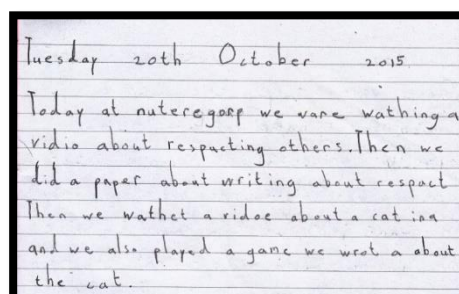 Tuesday 20th October 2015
Today at nuteregorp we vare wathing a
vidio about respacting others. Then we
did a paper about writing about respact
Then we wathet a vidoe about a cat ina
and we also played a game we wrot a about
the cat.